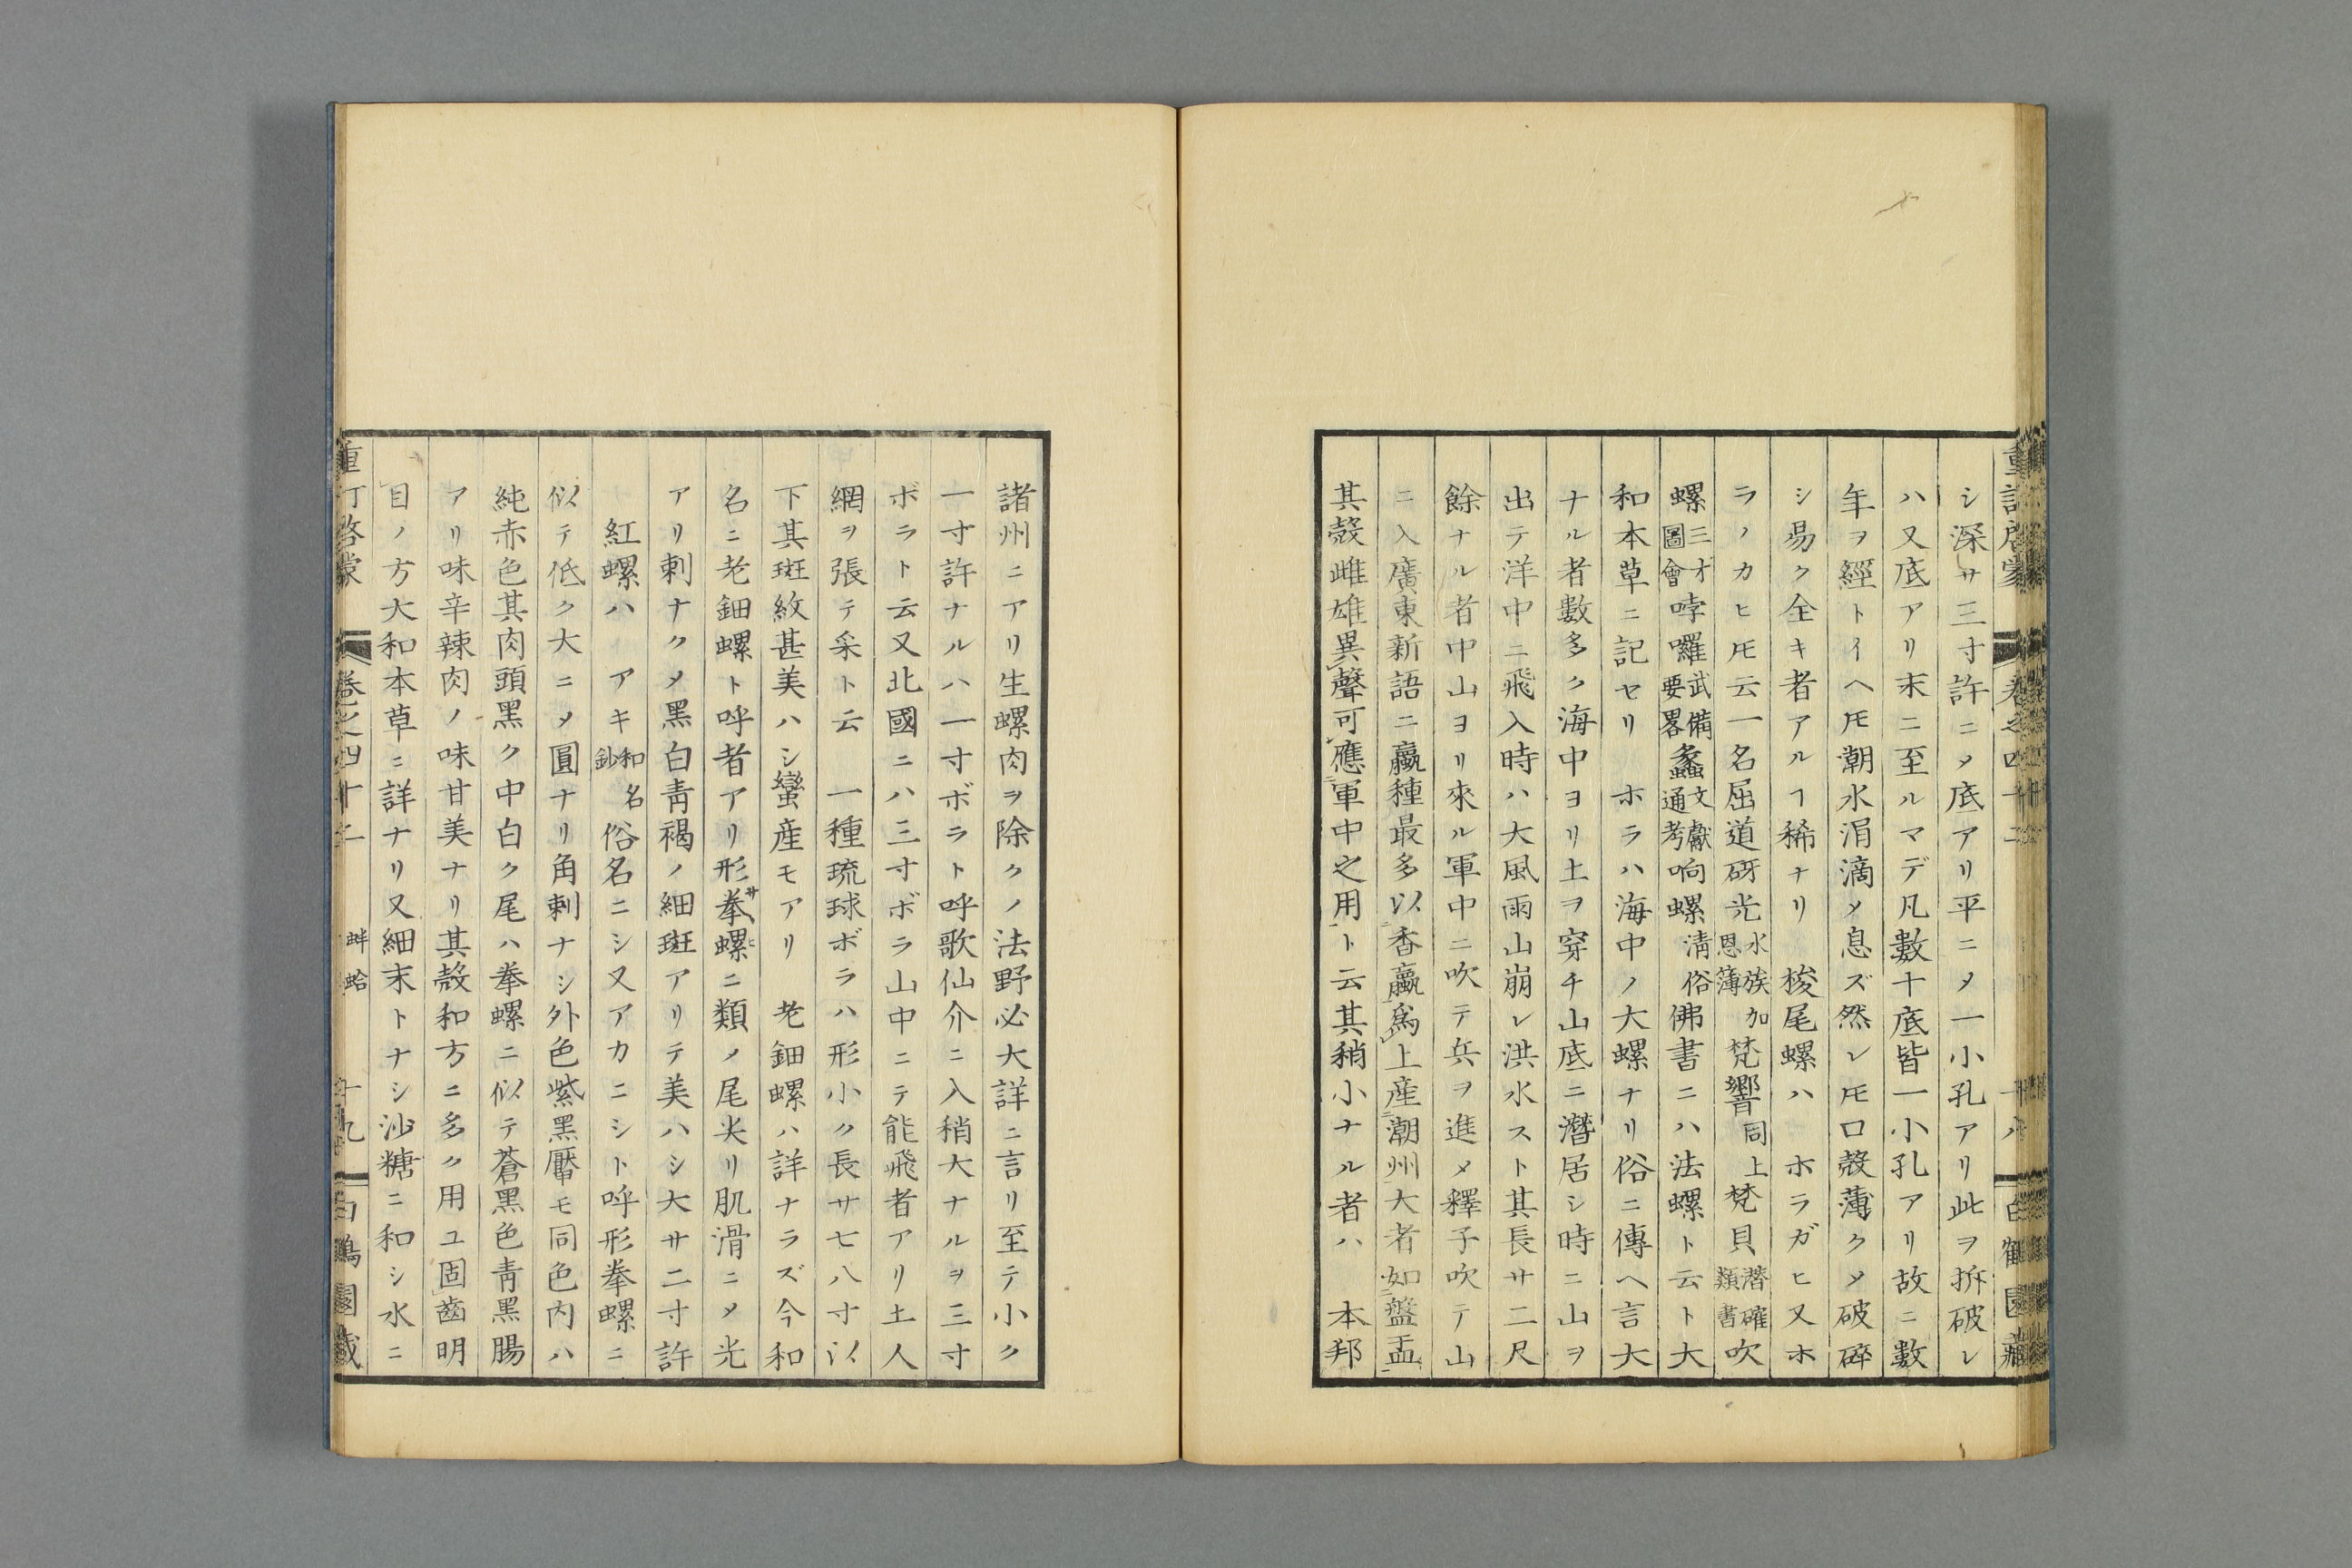 シ深サ三寸許ニ〆底アリ平ニ〆一小孔アリ此ヲ拆破レ
ハ又底アリ末ニ至ルマデ凡數十底皆一小孔アリ故ニ數
年ヲ經トイヘ𪜈潮水涓滴〆息ズ然レ𪜈口殼薄ク〆破碎
シ易ク全キ者アルヿ稀ナリ 梭尾螺ハ ホラガヒ又ホ
ラノカヒ𪜈云一名屈道砑光水族加恩薄梵響同上梵貝潛確類書吹
螺三才圖會哱囉武備要畧蠡文獻通考响螺清俗佛書ニハ法螺ト云ト大
和本草ニ記セリ ホラハ海中ノ大螺ナリ俗ニ傳ヘ言大
ナル者數多ク海中ヨリ土ヲ穿チ山底ニ潛居シ時ニ山ヲ
出テ洋中ニ飛入時ハ大風雨山崩レ洪水スト其長サ二尺
餘ナル者中山ヨリ來ル軍中ニ吹テ兵ヲ進メ釋子吹テ山
ニ入廣東新語ニ蠃種最多以香蠃爲上産潮州大者如盤盂
其殼雌雄異聲可應軍中之用ト云其稍小ナル者ハ 本邦
諸州ニアリ生螺肉ヲ除クノ法野必大詳ニ言リ至テ小ク
一寸許ナルハ一寸ボラト呼歌仙介ニ入稍大ナルヲ三寸
ボラト云又北國ニハ三寸ボラ山中ニテ能飛者アリ土人
網ヲ張テ采ト云 一種琉球ボラハ形小ク長サ七八寸以
下其斑紋甚美ハシ蠻産モアリ 老鈿螺ハ詳ナラズ今和
名ニ老鈿螺ト呼者アリ形拳螺サヾヒニ類〆尾尖リ肌滑ニ〆光
アリ刺ナク〆黑白靑褐ノ細斑アリテ美ハシ大サ二寸許
紅螺ハ アキ和名鈔俗名ニシ又アカニシト呼形拳螺ニ
似テ低ク大ニ〆圓ナリ角刺ナシ外色紫黑靨モ同色内ハ
純赤色其肉頭黑ク中白ク尾ハ拳螺ニ似テ蒼黑色靑黑腸
アリ味辛辣肉ノ味甘美ナリ其殼和方ニ多ク用ユ固齒明
目ノ方大和本草ニ詳ナリ又細末トナシ沙糖ニ和シ水ニ
重訂啓蒙 卷之四十二 蚌蛤 十九 白鶴園藏